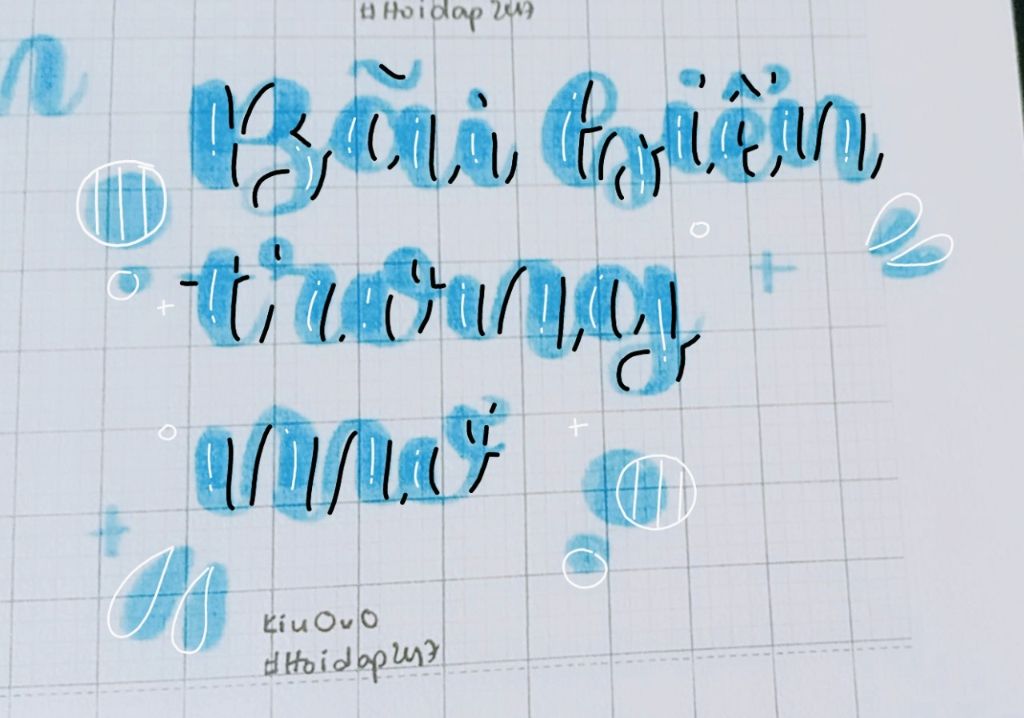 #Hoidap247
Bãi biển
trong
mơ
KiuOvO
#Hoidap247